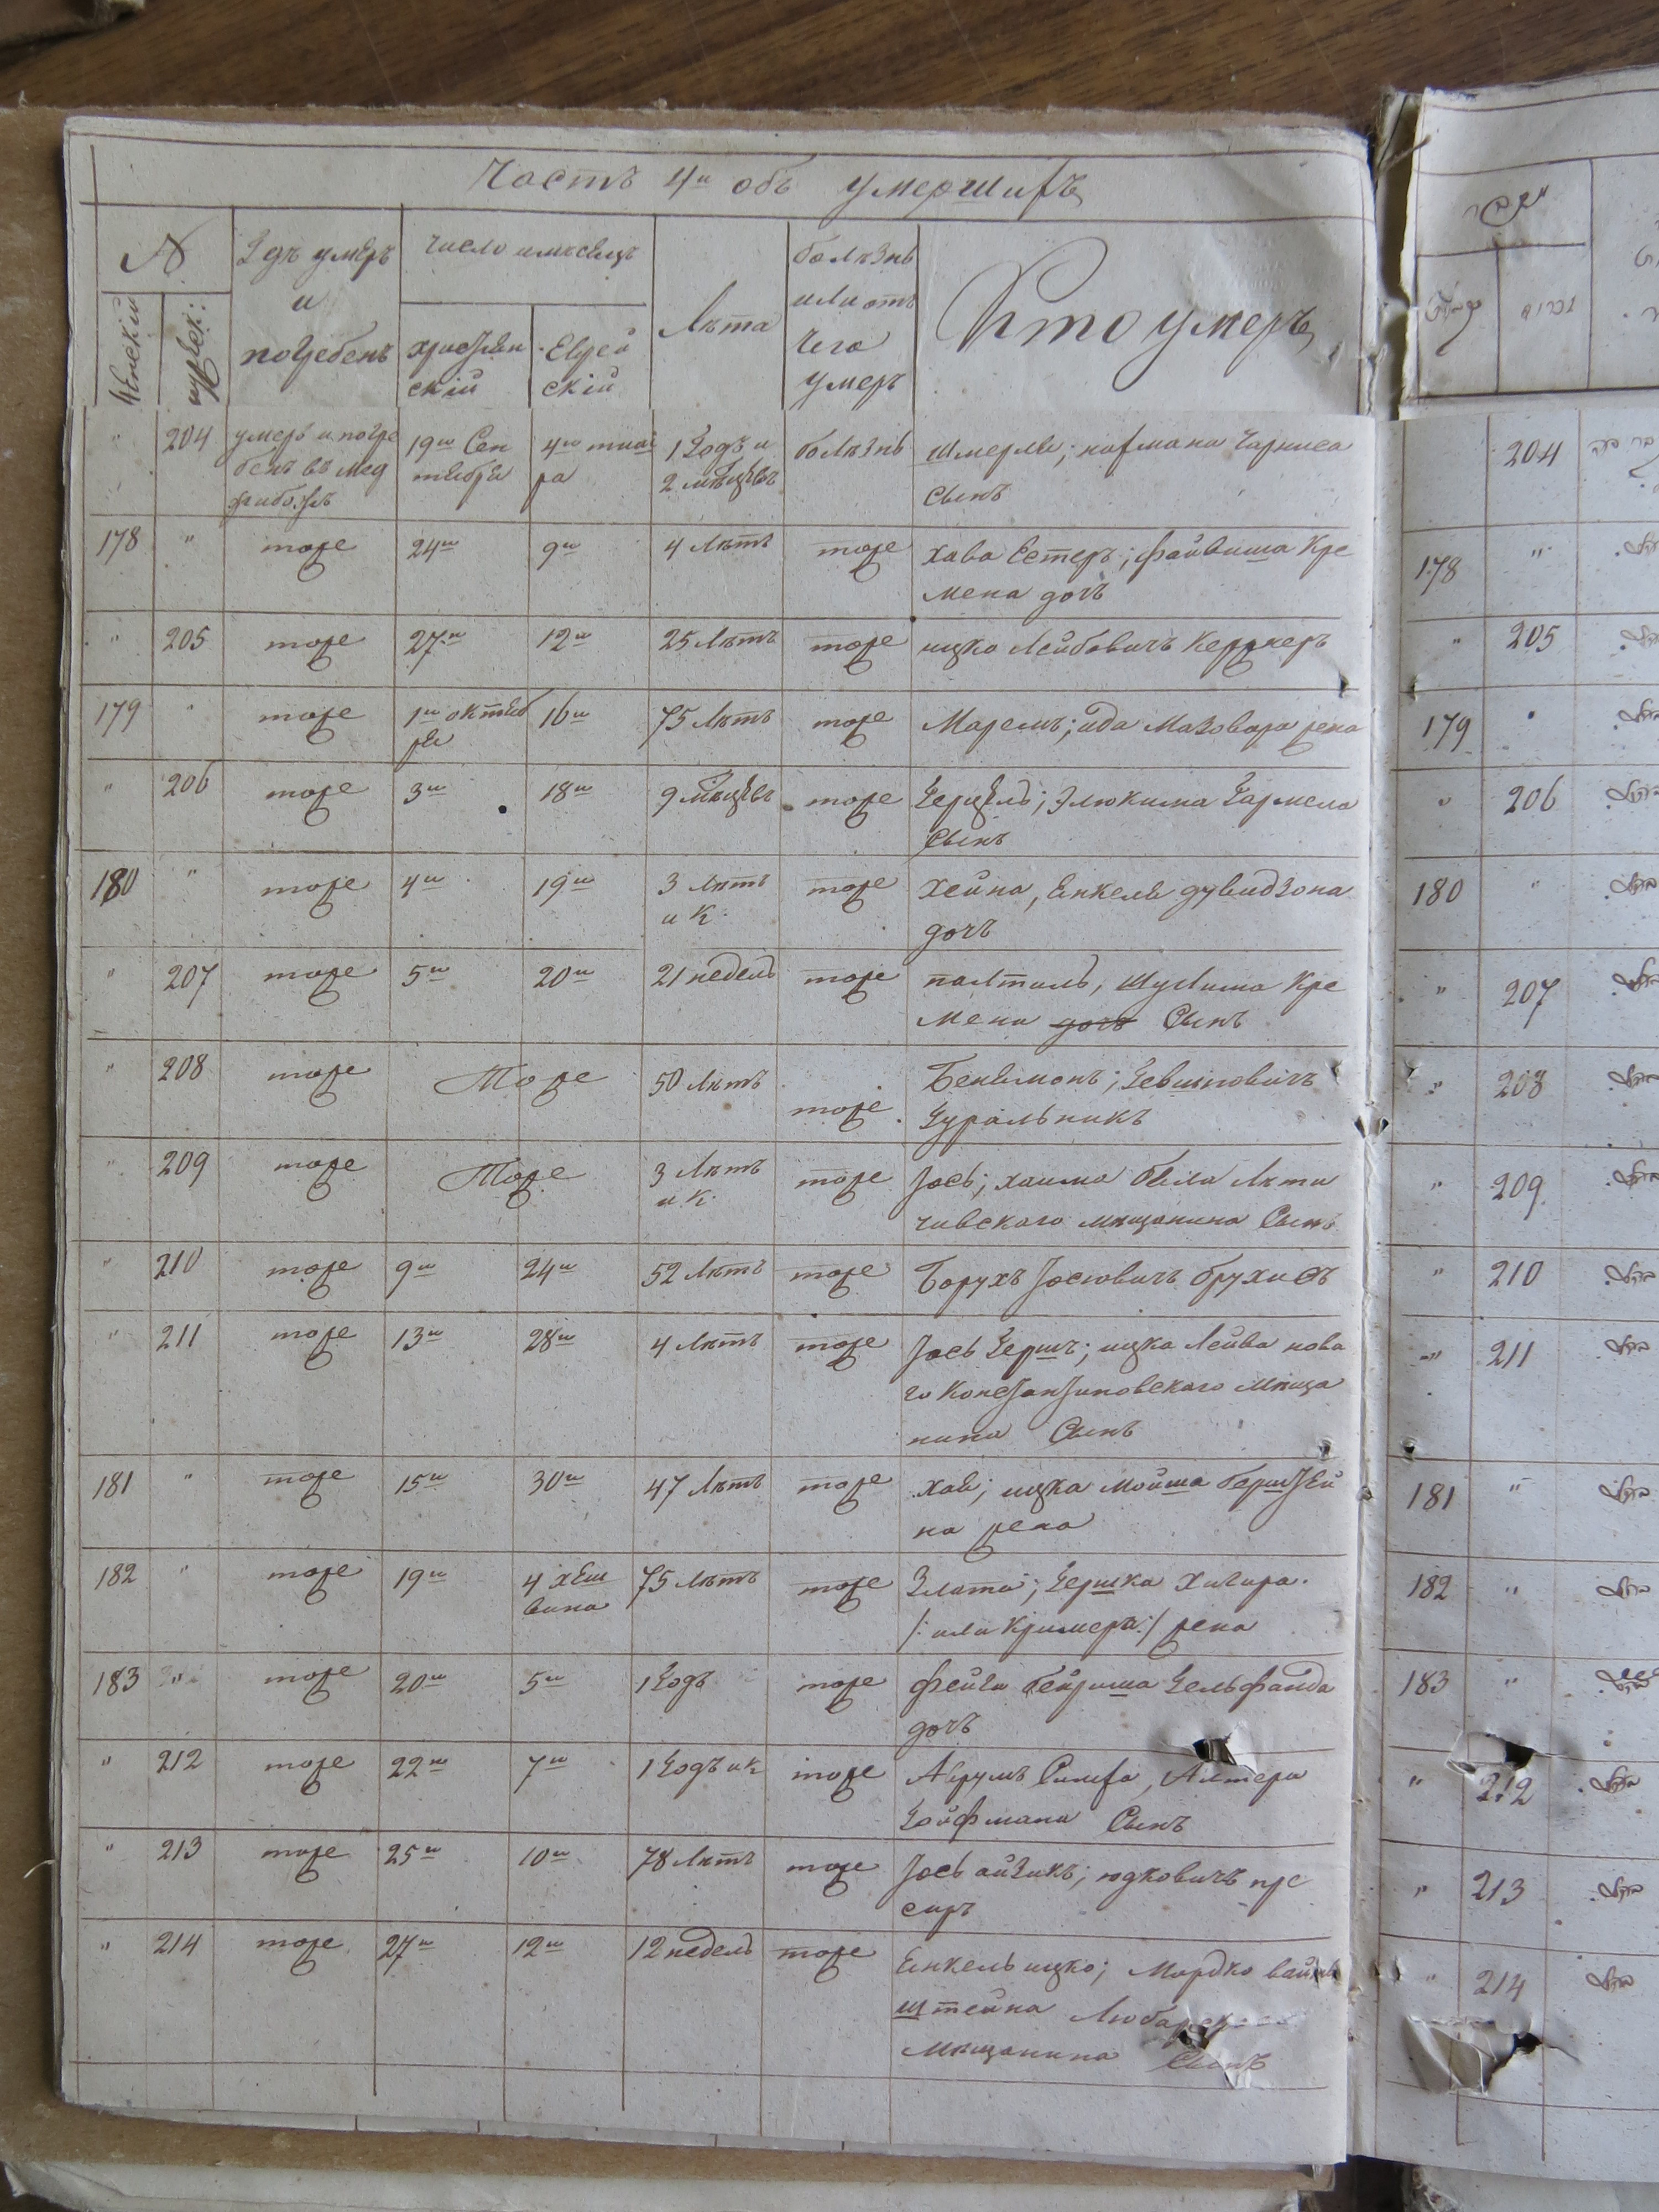 Часть 4я объ умершихъ
№
Женскій
мужеск:
Здѣ умеръ
и
погребенъ
число и мѣсецъ
христіян
скій
Еврей
скій
Лѣта
болѣзнь
или отъ
чего
умеръ
Кто умеръ
" 204 умеръ и погре 19го Сен 4го тиш 1 годъ и болѣзнь Шмерль; нахмана Чарниса
бенъ въ мед тября ра 2 мѣсяцевъ сынъ
жибожъ
178 " тоже 24го 9го 4 лѣтъ тоже хава Естеръ; файвиша Кре
мена дочь
" 205 тоже 27го 12го 25 лѣтъ тоже ицко Лейбовичъ
179 " тоже 1го октяб 16го 75 лѣтъ тоже Маремъ; ида Мазовара жена
ря
" 206 тоже 3го 18го 9 мѣсяцевъ тоже Герцель; Элюкима Гармела
сынъ
180 " тоже 4го 19го 3 лѣтъ тоже Хейна, Енкеля дувидзона
и К: дочь
" 207 тоже 5го 20го 21 недель тоже палтіель, Шулима Кре
мена дочь Сынъ
" 208 тоже Тоже 50 лѣтъ тоже Беніемонъ; Гевшиовичъ
Гуральникъ
" 209 тоже Тоже 3 лѣтъ тоже Іось; хаима Била Лѣти
и К: чевскаго мѣщанина Сынъ
" 210 тоже 9го 24го 52 лѣтъ тоже Борухъ Іосіовичъ брухисъ
" 211 тоже 13го 28го 4 лѣтъ тоже Іось Гершъ; ицка Лейва нова
го Константиновскаго мѣща
нина Сынъ
181 " тоже 15го 30го 47 лѣтъ тоже хая; ицка мойша берштей
на жена
182 " тоже 19го 4 хеш 75 лѣтъ тоже Злата; Гершка Хигира
вина /: или Кримера:/ жена
183 " тоже 20го 5го 1 годъ тоже фейга бейриша Гельфанда
дочь
" 212 тоже 22го 7го 1 годъ и к тоже Аврумъ Симха, Алтера
Гойфмана Сынъ
" 213 тоже 25го 10го 78 лѣтъ тоже Іось айзикъ; юдковичъ
" 214 тоже 27го 12го 12 недель тоже Енкель ицко; Мордко вайн
штейна Любарскаго
мѣщанина Сынъ
204
178 "
" 205
179 "
" 206
180 "
" 207
" 208
" 209
" 210
" 211
181 "
182 "
183 "
" 212
" 213
" 214